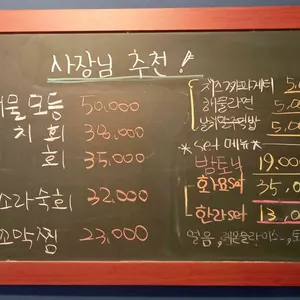 사장님 추천!
해물 모듬 50,000
치 회 38,000
회 35,000
소라숙회 32,000
꼬막찜 23,000
치즈스파게티 5,0
해물라면 5,0
날치알주먹밥 5,0
*Set 메뉴*
방토니 19,000
화요Set 35,0
한라set 13,0
얼음, 레몬슬라이스, 토